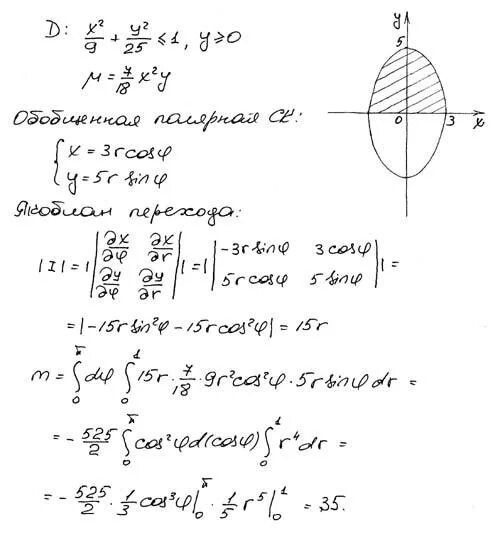 D: x²/9 + y²/25 ≤ 1, y ≥ 0
μ = 7/18 x²y
y
5
0
3
x
Обобщенная полярная СК:
{ x = 3r cosφ
y = 5r sinφ
Якобиан перехода:
|I| = | |∂x/∂φ ∂x/∂r; ∂y/∂φ ∂y/∂r| | = | |-3r sinφ 3 cosφ; 5r cosφ 5 sinφ| | =
= |-15r sin²φ - 15r cos²φ| = 15r
m = ∫₀^π dφ ∫₀^1 15r · 7/18 · 9r² cos²φ · 5r sinφ dr =
= - 525/2 ∫₀^π cos²φ d(cosφ) ∫₀^1 r⁴ dr =
= - 525/2 · 1/3 cos³φ|₀^π · 1/5 r⁵|₀^1 = 35.